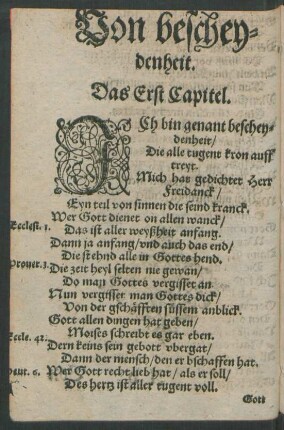 Von beschey-
denheit.
Das Erst Capitel.
ICh bin genant beschey-
denheit/
Die alle tugent kron auff
treyt.
Mich hat gedichtet Herr
Freidanck/
Eyn teil von sinnen die seind kranck.
Wer Gott dienet on allen wanck/
Ecclesi. 1.
Das ist aller weyßheit anfang.
Dann ja anfang/ vnd auch das end/
Die stehnd alle in Gottes hend.
Prouer. 3.
Die zeit heyl selten nie gewan/
Do man Gottes vergisset an
Nun vergisset man Gottes dick/
Von der gschäfften süssem anblick.
Gott allen dingen hat geben/
Moises schreibt es gar eben.
Eccle. 42.
Dern keins sein gebott vbergat/
Dann der mensch/ den er bschaffen hat.
Deut. 6.
Wer Gott recht lieb hat/ als er soll/
Des hertz ist aller tugent voll.
Gott